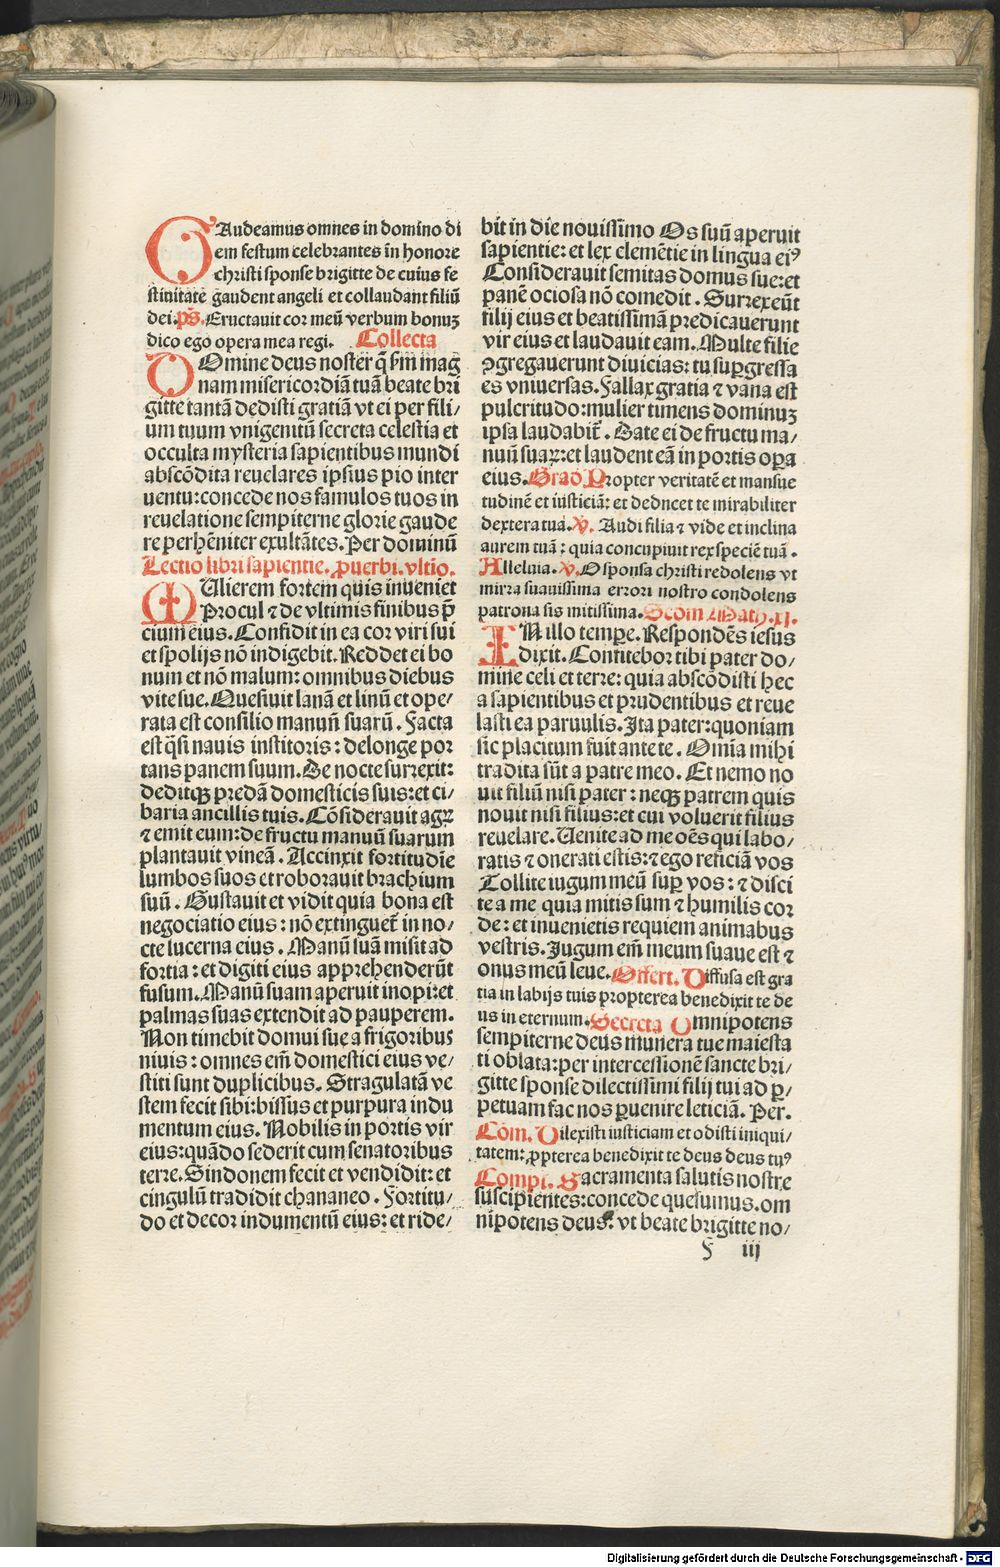 GAudeamus omnes in domino di
em festum celebrantes in honore
christi sponse brigitte de cuius fe
stiuitate gaudent angeli et collaudant filiū
dei. ps̄. Eructauit cor meū verbum bonuʒ
dico ego opera mea regi. Collecta
DOmine deus noster q̄ ſm mag
nam misericordiā tuā beate bri
gitte tantā dedisti gratiā vt ei per fili/
um tuum vnigenitū secreta celestia et
occulta mysteria sapientibus mundi
abscōdita reuelares ipsius pio inter
uentu: concede nos famulos tuos in
reuelatione sempiterne glorie gaude
re perhēniter exultātes. Per dominū
Lectio libri sapientie. ꝓuerbi. vltīo.
MUlierem fortem quis inueniet
Procul ⁊ de vltimis finibus p̄
cium eius. Confidit in ea cor viri sui
et spolijs nō indigebit. Reddet ei bo
num et nō malum: omnibus diebus
vite sue. Quesiuit lanā et linū et ope-
rata est consilio manuū suarū. Facta
est q̄si nauis institoris: de longe por
tans panem suum. De nocte surrexit:
deditqꝫ predā domesticis suis: et ci-
baria ancillis tuis. Cōsiderauit agꝝ
⁊ emit eum: de fructu manuū suarum
plantauit vineā. Accinxit fortitudīe
lumbos suos et roborauit brachium
suū. Gustauit et vidit quia bona est
negociatio eius: nō extinguet̄ in no-
cte lucerna eius. Manū suā misit ad
fortia: et digiti eius apprehenderūt
fusum. Manū suam aperuit inopi: et
palmas suas extendit ad pauperem.
Non timebit domui sue a frigoribus
niuis: omnes em̄ domestici eius ve/
stiti sunt duplicibus. Stragulatā ve
stem fecit sibi: bissus et purpura indu
mentum eius. Nobilis in portis vir
eius: quādo sederit cum senatoribus
terre. Sindonem fecit et vendidit: et
cingulū tradidit chananeo. Fortitu/
do et decor indumentū eius: et ride/
bit in die nouissimo Os suū aperuit
sapientie: et lex clemētie in lingua eiꝰ
Considerauit semitas domus sue: et
panē ociosa nō comedit. Surrexeūt
filij eius et beatissimā predicauerunt
vir eius et laudauit eam. Multe filie
ꝯgregauerunt diuicias: tu sup̱gressa
es vniuersas. Fallax gratia ⁊ vana est
pulcritudo: mulier timens dominuʒ
ipsa laudabit̄. Date ei de fructu ma/
nuū suaꝝ: et laudent eā in portis oꝑa
eius. Grad̄ Propter veritatē et mansue
tudinē et iusticiā: et deducet te mirabiliter
dextera tua. ℣. Audi filia ⁊ vide et inclina
aurem tuā: quia concupiuit rex speciē tuā.
Alleluia. ℣. O sponsa christi redolens vt
mirra suauissima errori nostro condolens
patrona sis mitissima. Scdm Math. xj.
IN illo tempe. Respondēs iesus
dixit. Confitebor tibi pater do/
mine celi et terre: quia abscōdisti hec
a sapientibus et prudentibus et reue
lasti ea paruulis. Ita pater: quoniam
sic placitum fuit ante te. Omīa mihi
tradita sūt a patre meo. Et nemo no
uit filiū nisi pater: neqꝫ patrem quis
nouit nisi filius: et cui voluerit filius
reuelare. Uenite ad me oēs qui labo/
ratis ⁊ onerati estis: ⁊ ego reficiā vos
Tollite iugum meū suꝑ vos: ⁊ disci
te a me quia mitis sum ⁊ humilis cor
de: et inuenietis requiem animabus
vestris. Jugum em̄ meum suaue est ⁊
onus meū leue. Offert. Diffusa est gra
tia in labijs tuis propterea benedixit te de
us in eternum. Secreta Omnipotens
sempiterne deus munera tue maiesta
ti oblata: per intercessionē sancte bri/
gitte sponse dilectissimi filij tui ad ꝑ/
petuam fac nos ꝑuenire leticiā. Per.
Com̄. Dilexisti iusticiam et odisti iniqui/
tatem: ꝓpterea benedixit te deus deus tuꝰ
Compl. Sacramenta salutis nostre
suscipientes: concede quesumus. om
nipotens deus: vt beate brigitte no/
ſ iij
Digitalisierung gefördert durch die Deutsche Forschungsgemeinschaft - DFG